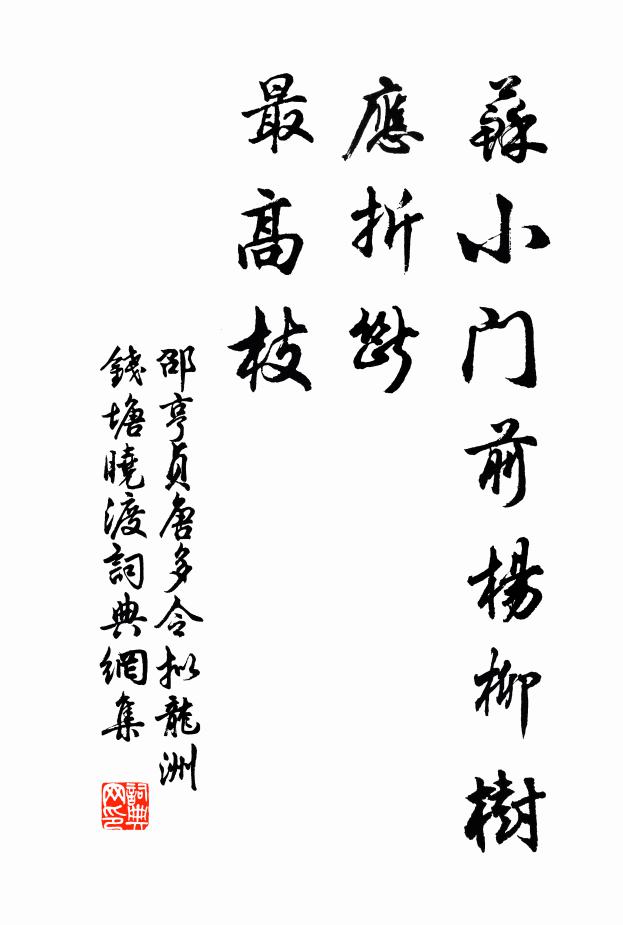 蘇小門前楊柳樹
應折斷
最高枝
邵亨貞唐多令拟龍洲
錢塘曉渡詞典網集
詞典网印